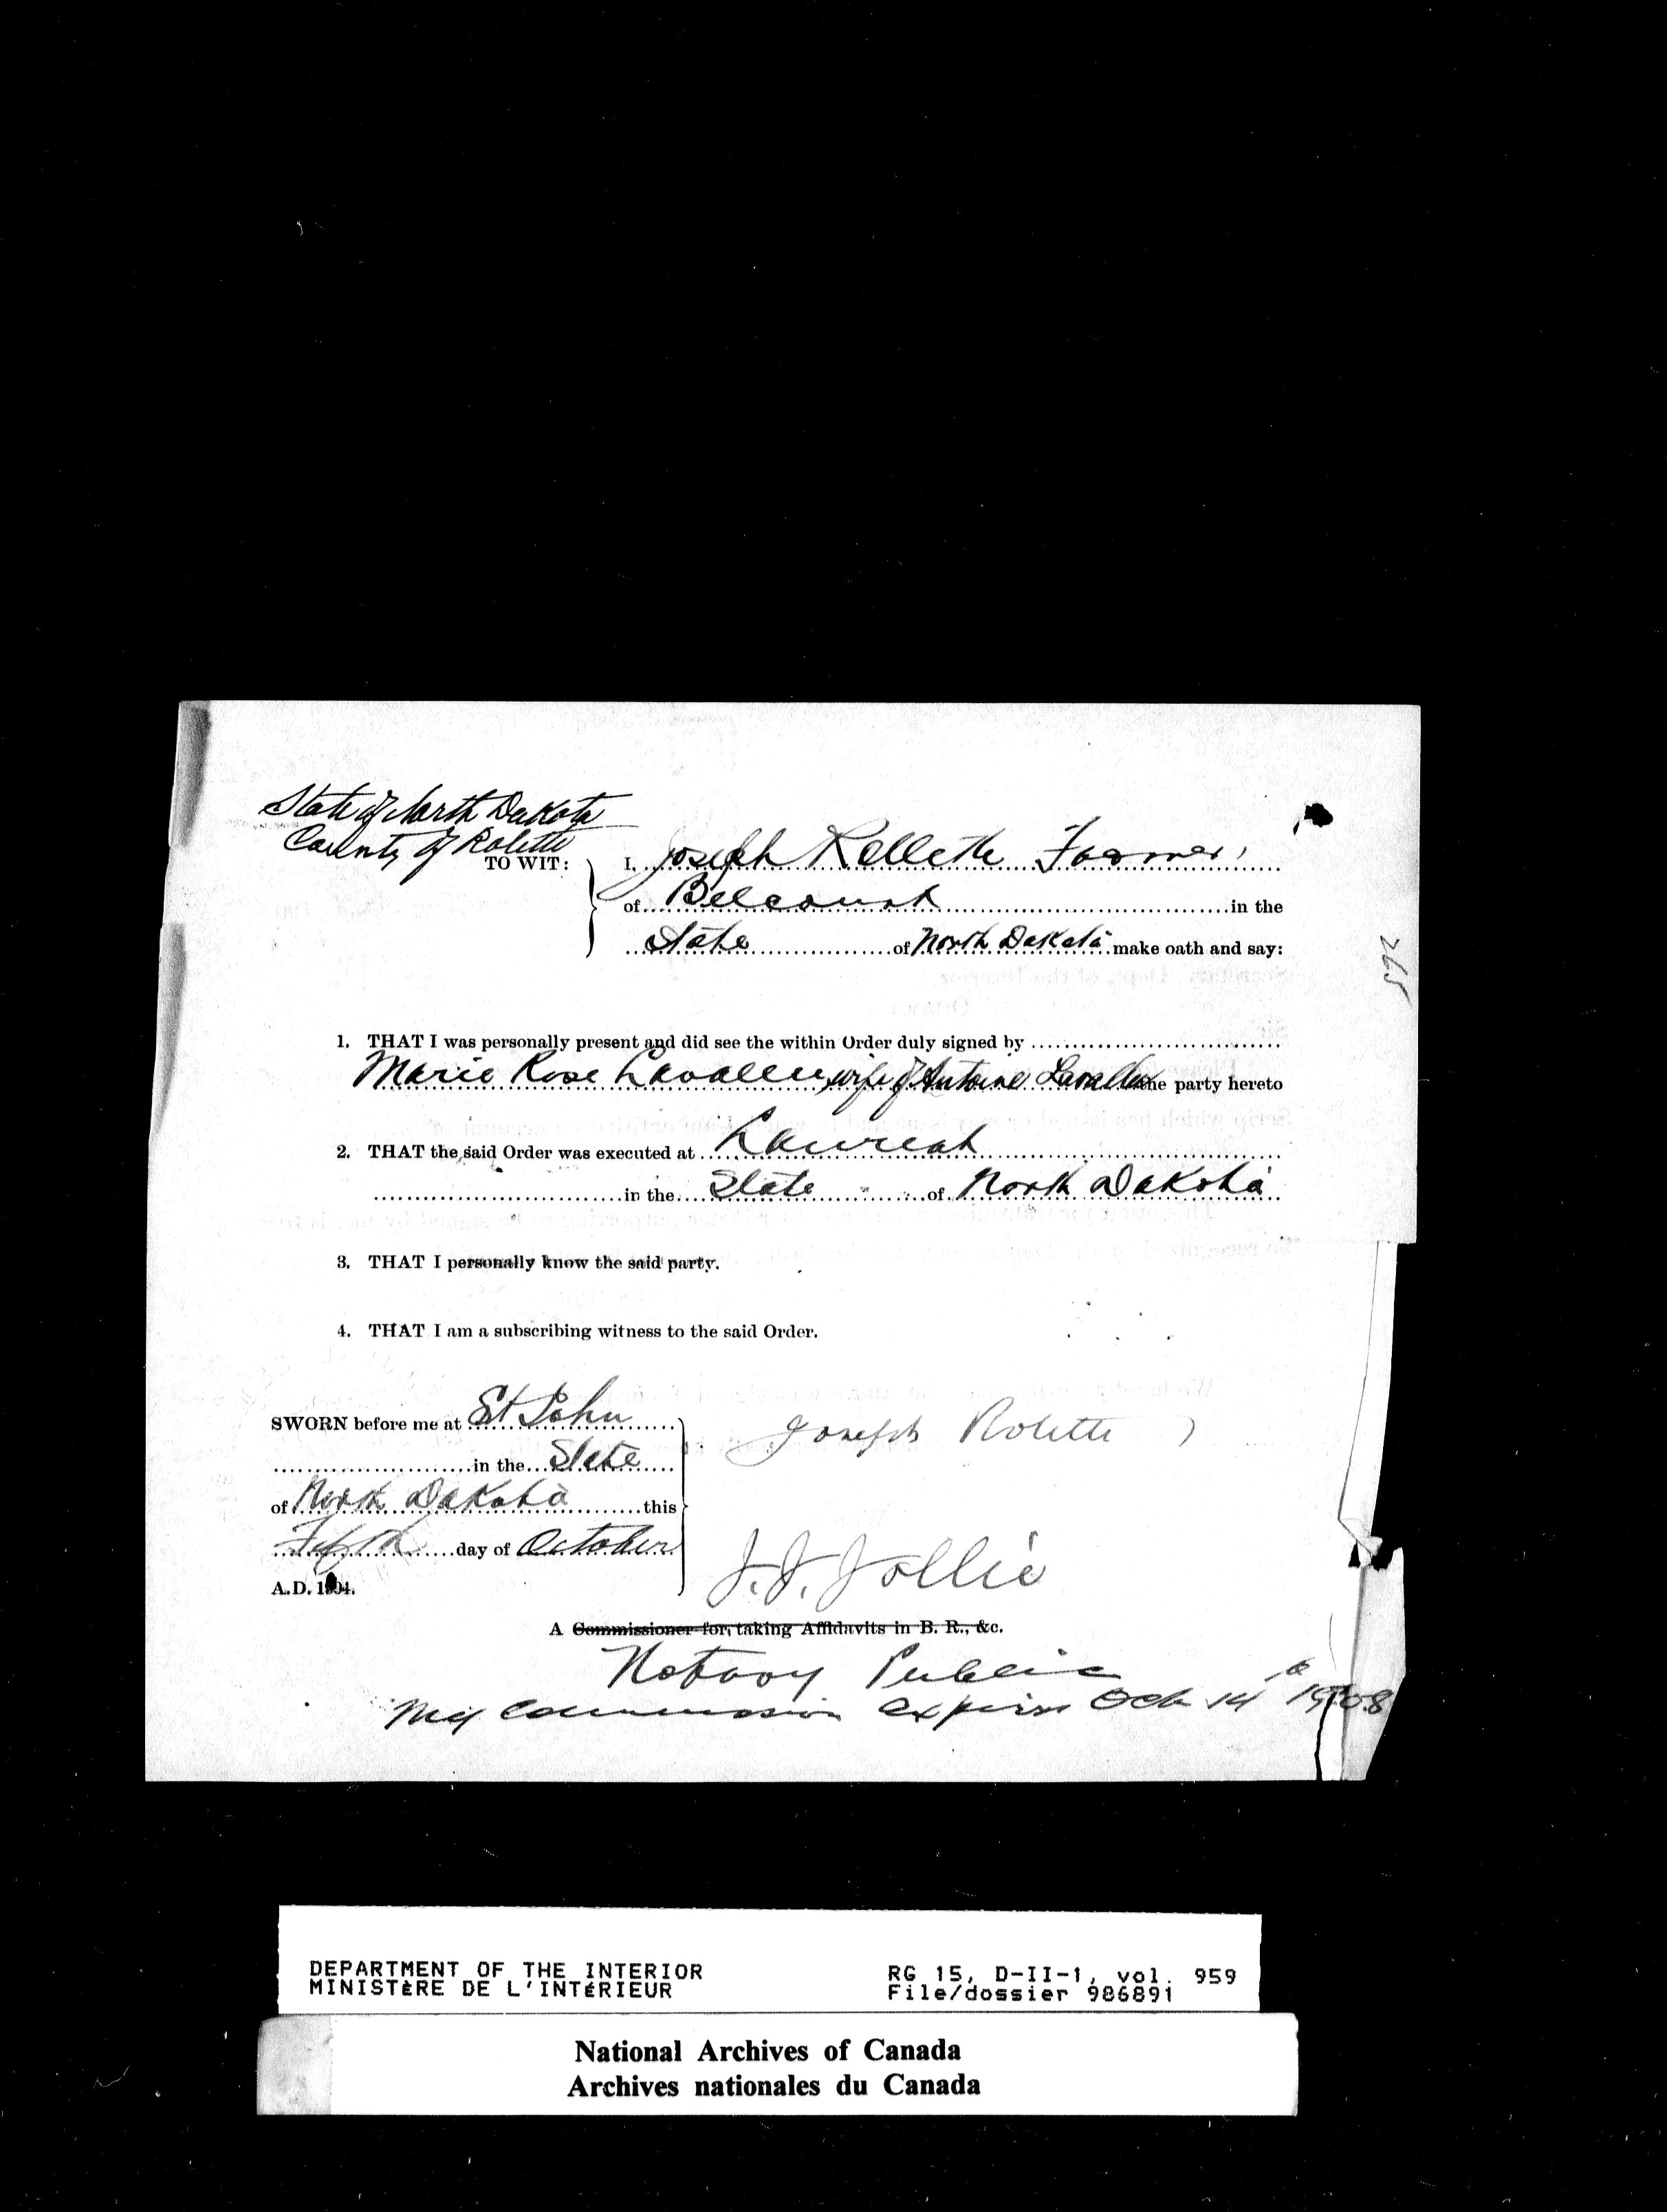 State of North Dakota
County of Rolette
TO WIT:
I, Joseph Rellette Farmer,
of Belcourt in the
State of North Dakota make oath and say:
1. THAT I was personally present and did see the within Order duly signed by
Marie Rose Lavallee, wife of Antoine Lavallee the party hereto
2. THAT the said Order was executed at Laureat
in the State of North Dakota
3. THAT I personally know the said party.
4. THAT I am a subscribing witness to the said Order.
SWORN before me at St John
in the State
of North Dakota this
Fifth day of October
A.D. 1904.
Joseph Rolette
J. J. Jollie
A Commissioner for, taking Affidavits in B. R., &c.
Notary Public
My Commission expires Oct 14th 1908
DEPARTMENT OF THE INTERIOR
MINISTÈRE DE L'INTÉRIEUR
RG 15, D-II-1, vol. 959
File/dossier 986891
National Archives of Canada
Archives nationales du Canada